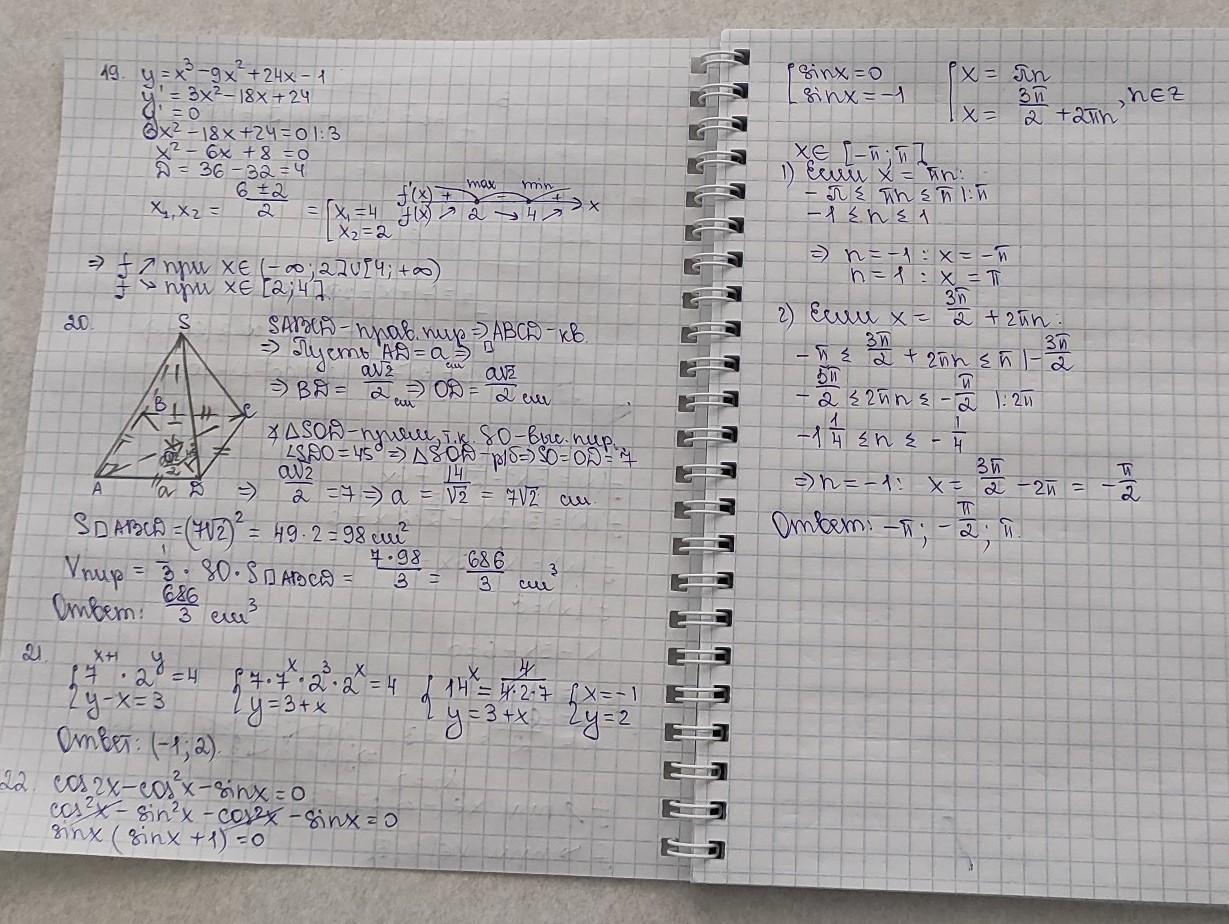 19. y = x³ - 9x² + 24x - 1
y' = 3x² - 18x + 24
y' = 0
3x² - 18x + 24 = 0 |:3
x² - 6x + 8 = 0
D = 36 - 32 = 4
x₁,x₂ = (6 ± 2)/2 = [x₁ = 4
x₂ = 2
max min
f'(x) + - + x
f(x) ↗ 2 ↘ 4 ↗
⇒ f ↗ при x∈(-∞; 2]∪[4; +∞)
f ↘ при x∈[2; 4].
20.
S
B C
A a D
SABCD - прав. пир ⇒ ABCD - кв.
⇒ Пусть AD = a см ⇒
⇒ BD = a√2/2 см ⇒ OD = a√2/2 см
△SOD - прям, т.к. SO - выс. пир.
∠SDO = 45° ⇒ △SOD - р/б ⇒ SO = OD = 7
⇒ a√2/2 = 7 ⇒ a = 14/√2 = 7√2 см.
S□ABCD = (7√2)² = 49·2 = 98 см²
Vпир = 1/3 · SO · S□ABCD = 7·98/3 = 686/3 см³
Ответ: 686/3 см³
21.
{7^(x+1) · 2^y = 4 {7·7^x·2³·2^x = 4 {14^x = 4/(4·2·7) {x = -1
{y - x = 3 {y = 3 + x {y = 3 + x {y = 2
Ответ: (-1; 2).
22. cos2x - cos²x - sinx = 0
cos²x - sin²x - cos²x - sinx = 0
sinx (sinx + 1) = 0
[sinx = 0 [x = πn
[sinx = -1 [x = 3π/2 + 2πn, n∈Z
x∈[-π; π]
1) Если x = πn:
-π ≤ πn ≤ π |:π
-1 ≤ n ≤ 1
⇒ n = -1 : x = -π
n = 1 : x = π
2) Если x = 3π/2 + 2πn:
-π ≤ 3π/2 + 2πn ≤ π |-3π/2
-5π/2 ≤ 2πn ≤ -π/2 |:2π
-1 1/4 ≤ n ≤ -1/4
⇒ n = -1: x = 3π/2 - 2π = -π/2
Ответ: -π; -π/2; π.